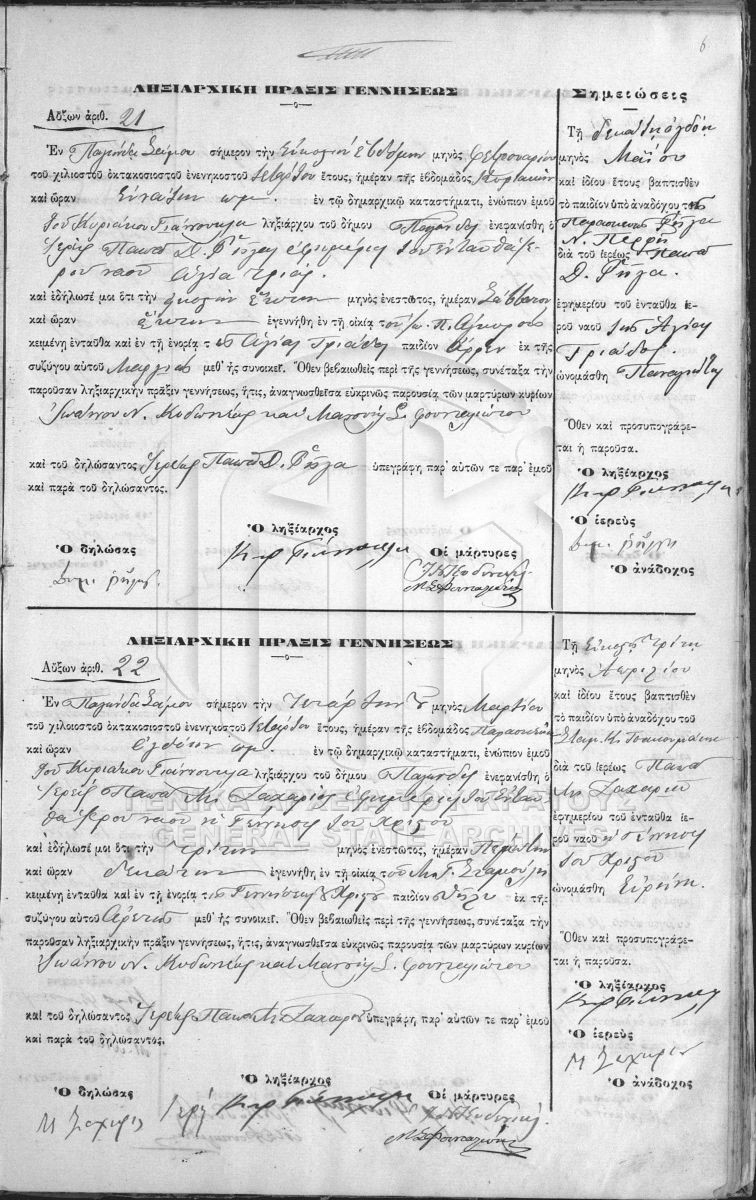 6
ΛΗΞΙΑΡΧΙΚΗ ΠΡΑΞΙΣ ΓΕΝΝΗΣΕΩΣ
Αὔξων ἀριθ. 21
Ἐν Παγώνδα Σάμου σήμερον τὴν Εἰκοστὴν ἑβδόμην μηνὸς Φεβρουαρίου
τοῦ χιλιοστοῦ ὀκτακοσιοστοῦ ἐνενηκοστοῦ τετάρτου ἔτους, ἡμέραν τῆς ἑβδομάδος Κυριακὴν
καὶ ὥραν Ἐννάτην π.μ. ἐν τῷ δημαρχικῷ καταστήματι, ἐνώπιον ἐμοῦ
τοῦ Κυριάκου Γιάννουκα ληξιάρχου τοῦ δήμου Παγώνδα ἐνεφανίσθη ὁ
Ἱερεὺς Παπᾶ Δ. Ῥήγας ἐφημέριος τοῦ ἐνταῦθα ἱε-
ροῦ ναοῦ Ἁγία Τριάς.
καὶ ἐδήλωσέ μοι ὅτι τὴν εἰκοστὴν ἕκτην μηνὸς ἐνεστῶτος, ἡμέραν Σάββατον
καὶ ὥραν ἕκτην ἐγεννήθη ἐν τῇ οἰκίᾳ τοῦ Π.
κειμένῃ ἐνταῦθα καὶ ἐν τῇ ἐνορίᾳ τῆς Ἁγίας Τριάδος παιδίον ἄρρεν ἐκ τῆς
συζύγου αὐτοῦ μεθ' ἧς συνοικεῖ. Ὅθεν βεβαιωθεὶς περὶ τῆς γεννήσεως, συνέταξα τὴν
παροῦσαν ληξιαρχικὴν πρᾶξιν γεννήσεως, ἥτις, ἀναγνωσθεῖσα εὐκρινῶς παρουσίᾳ τῶν μαρτύρων κυρίων
Ἰωάννου Ν. Κυδωνιέως καὶ Μανουὴλ Σ. Φουνταλιώτου
καὶ τοῦ δηλώσαντος Ἱερέως Παπᾶ Δ. Ῥήγα ὑπεγράφη παρ' αὐτῶν τε παρ' ἐμοῦ
καὶ παρὰ τοῦ δηλώσαντος.
Ὁ δηλώσας
Ὁ ληξίαρχος
Οἱ μάρτυρες
Σημειώσεις
Τῇ δεκάτῃ ὀγδόῃ
μηνὸς Μαΐου
καὶ ἰδίου ἔτους βαπτισθὲν
τὸ παιδίον ὑπὸ ἀναδόχου τῆς
Παρασκευῆς Ῥήγα
Ν. Περρῆ
διὰ τοῦ ἱερέως Παπᾶ
Δ. Ῥήγα.
ἐφημερίου τοῦ ἐνταῦθα ἱε-
ροῦ ναοῦ τῆς Ἁγίας
Τριάδος
ὠνομάσθη Παναγιώτης
Ὅθεν καὶ προσυπογράφε-
ται ἡ παροῦσα.
Ὁ ληξίαρχος
Ὁ ἱερεὺς
Ὁ ἀνάδοχος
ΛΗΞΙΑΡΧΙΚΗ ΠΡΑΞΙΣ ΓΕΝΝΗΣΕΩΣ
Αὔξων ἀριθ. 22
Ἐν Παγώνδα Σάμου σήμερον τὴν τετάρτην μηνὸς Μαρτίου
τοῦ χιλιοστοῦ ὀκτακοσιοστοῦ ἐνενηκοστοῦ τετάρτου ἔτους, ἡμέραν τῆς ἑβδομάδος Παρασκευὴν
καὶ ὥραν ὀγδόην π.μ. ἐν τῷ δημαρχικῷ καταστήματι, ἐνώπιον ἐμοῦ
τοῦ Κυριάκου Γιάννουκα ληξιάρχου τοῦ δήμου Παγώνδα ἐνεφανίσθη ὁ
Ἱερεὺς Παπᾶ Μ. Ζαχαρίας ἐφημέριος τοῦ ἐνταῦ-
θα ἱεροῦ ναοῦ ἡ Γέννησις τοῦ Χριστοῦ
καὶ ἐδήλωσέ μοι ὅτι τὴν τρίτην μηνὸς ἐνεστῶτος, ἡμέραν Πέμπτην
καὶ ὥραν δεκάτην ἐγεννήθη ἐν τῇ οἰκίᾳ τοῦ Μ. Γ. Σταμούλη
κειμένῃ ἐνταῦθα καὶ ἐν τῇ ἐνορίᾳ τῆς Γεννήσεως Χριστοῦ παιδίον θῆλυ ἐκ τῆς
συζύγου αὐτοῦ Ἀρετῆς μεθ' ἧς συνοικεῖ. Ὅθεν βεβαιωθεὶς περὶ τῆς γεννήσεως, συνέταξα τὴν
παροῦσαν ληξιαρχικὴν πρᾶξιν γεννήσεως, ἥτις, ἀναγνωσθεῖσα εὐκρινῶς παρουσίᾳ τῶν μαρτύρων κυρίων
Ἰωάννου Ν. Κυδωνιέως καὶ Μανουὴλ Σ. Φουνταλιώτου
καὶ τοῦ δηλώσαντος Ἱερέως Παπᾶ Μ. Ζαχαρίου ὑπεγράφη παρ' αὐτῶν τε παρ' ἐμοῦ
καὶ παρὰ τοῦ δηλώσαντος.
Ὁ δηλώσας
Ὁ ληξίαρχος
Οἱ μάρτυρες
Τῇ Εἰκοστῇ τρίτῃ
μηνὸς Ἀπριλίου
καὶ ἰδίου ἔτους βαπτισθὲν
τὸ παιδίον ὑπὸ ἀναδόχου τοῦ
Σταμ. Κ.
διὰ τοῦ ἱερέως Παπᾶ
Μ. Ζαχαρία
ἐφημερίου τοῦ ἐνταῦθα ἱε-
ροῦ ναοῦ ἡ Γέννησις
τοῦ Χριστοῦ
ὠνομάσθη Εἰρήνη.
Ὅθεν καὶ προσυπογράφε-
ται ἡ παροῦσα.
Ὁ ληξίαρχος
Ὁ ἱερεὺς
Ὁ ἀνάδοχος
ΓΕΝΙΚΑ ΑΡΧΕΙΑ ΤΟΥ ΚΡΑΤΟΥΣ
GENERAL STATE ARCHIVES